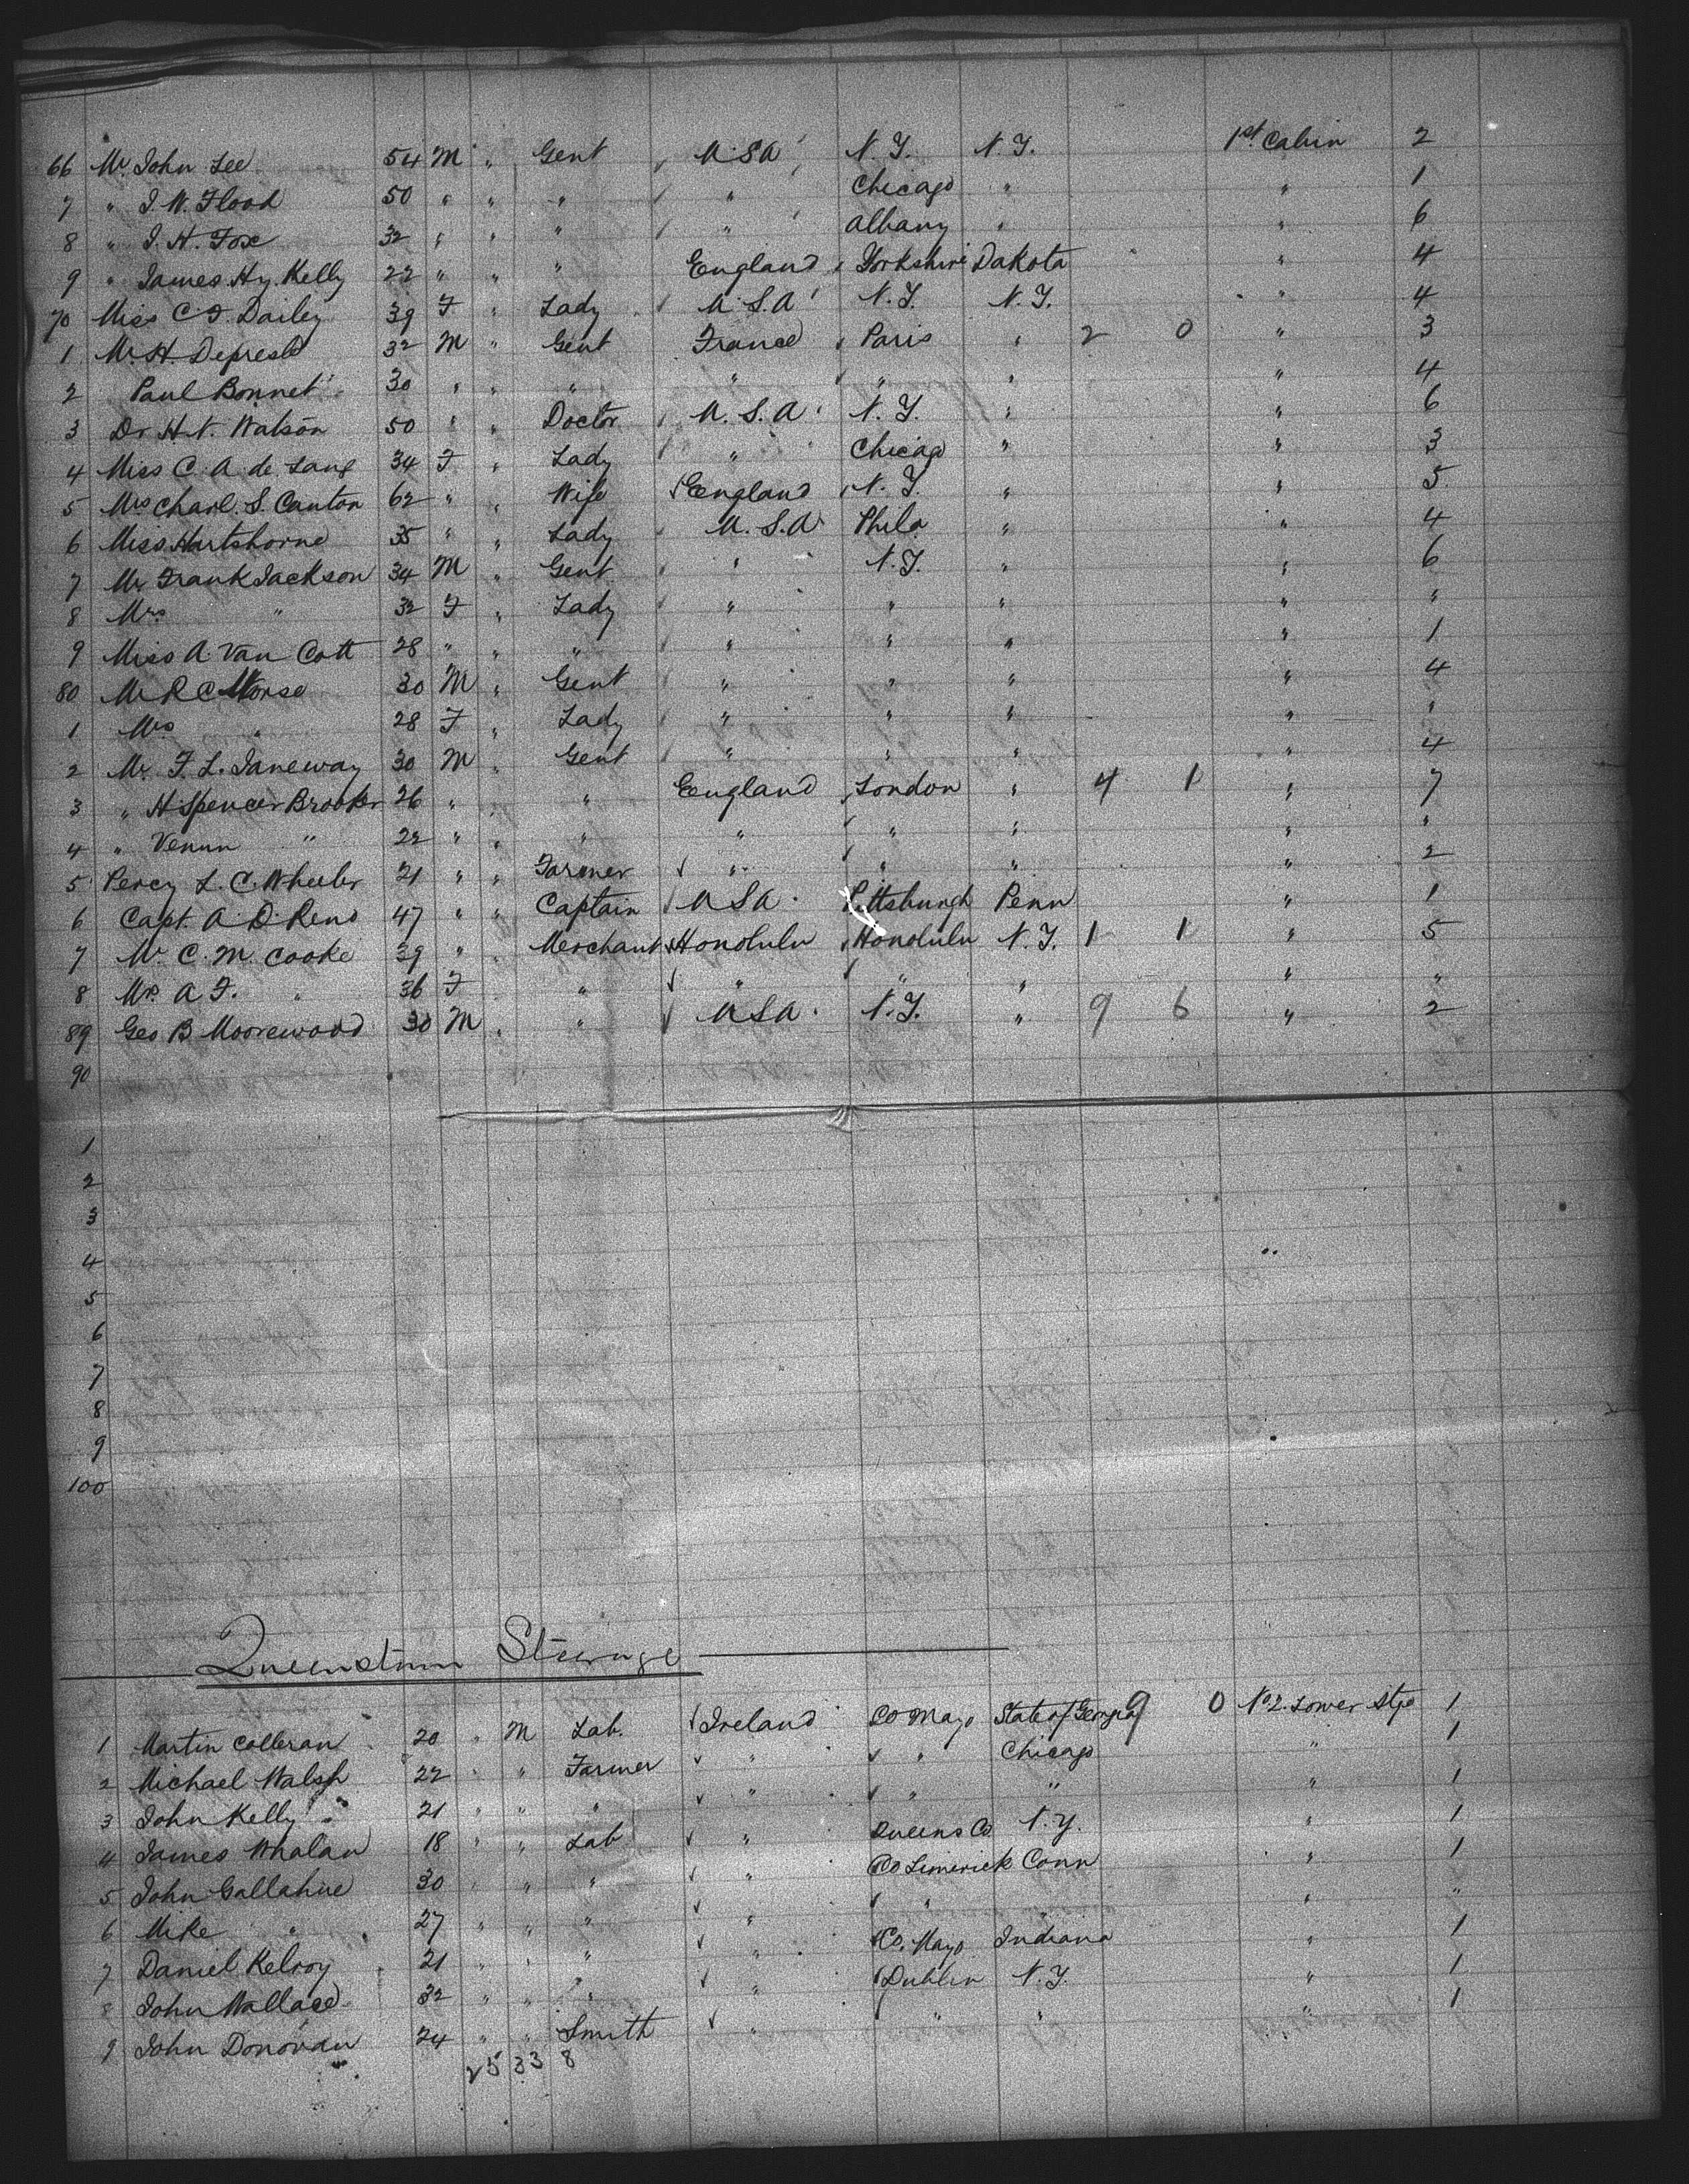 66 Mr. John Lee 54 M " Gent U.S.A N.Y. N.Y. 1st Cabin 2
7 " J. W. Flood 50 " " " " Chicago " " 1
8 " J. H. Fox 32 " " " " Albany " " 6
9 " James Hy. Kelly 22 " " " England Yorkshire Dakota " 4
70 Miss C. F. Dailey 39 F " Lady U.S.A N.Y. N.Y. " 4
1 Mr. H. 32 M " Gent France Paris " 2 0 " 3
2 Paul Bonnet 30 " " " " " " " 4
3 Dr H. N. Watson 50 " " Doctor U.S.A. N.Y. " " 6
4 Miss C. A. de 34 F " Lady " Chicago " " 3
5 Mrs Charl. S. Canton 62 " " Wife England N.Y. " " 5
6 Miss Hartshorne 35 " " Lady U.S.A Phila " " 4
7 Mr Frank Jackson 34 M " Gent " N.Y. " " 6
8 Mrs " 32 F " Lady " " " " "
9 Miss A. Van Cott 28 " " " " " " " 1
80 Mr R C Morse 30 M " Gent " " " " 4
1 Mrs " 28 F " Lady " " " " "
2 Mr. F. L. Janeway 30 M " Gent " " " " 4
3 " H. Spencer Brooker 26 " " England London " 4 1 " 7
4 " " 22 " " " " " " " "
5 Percy L. C. Wheeler 21 " " Farmer " " " " 2
6 Capt. A. D. Reno 47 " " Captain U S A. Pittsburgh Penn " 1
7 Mr C. M. Cooke 39 " " Merchant Honolulu Honolulu N.Y. 1 1 " 5
8 Mrs. A. F. " 36 F " " " " " "
89 Geo B Moorewood 30 M " " U S A. N.Y. " 9 6 " 2
90
1
2
3
4
5
6
7
8
9
100
Queenstown Steerage
1 Martin Colleran 20 " M Lab. Ireland Co Mayo State of Georgia 9 0 No. 2. Lower Stge 1
2 Michael Walsh 22 " " Farmer " " Chicago " 1
3 John Kelly 21 " " " " " " " 1
4 James Whalan 18 " " Lab " Queens Co N.Y. " 1
5 John Gallahue 30 " " " " Co Limerick Conn " 1
6 Mike " 27 " " " " " " " "
7 Daniel Kelroy 21 " " " " Co. Mayo Indiana " 1
8 John Wallace 32 " " " " Dublin N.Y. " 1
9 John Donovan 24 " " Smith " " " " 1
25 33 8